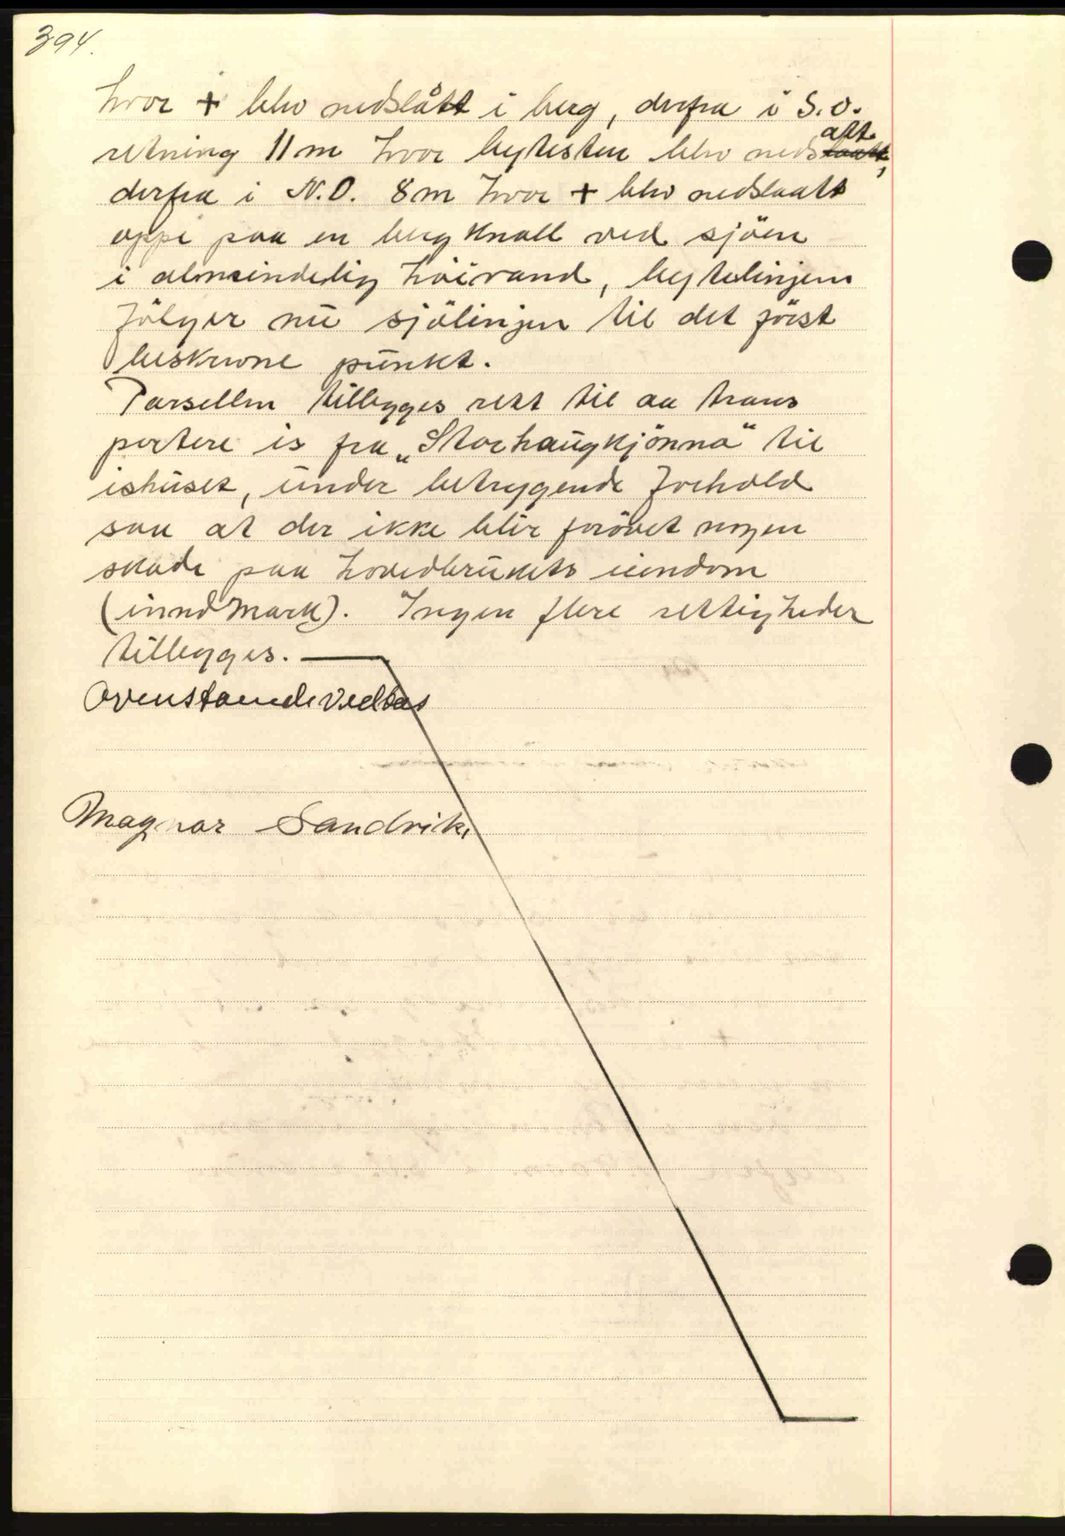 394.
hvor + blev nedslått i berg, derfra i S.O.
retning 11 m hvor bytesten blev nedsatt,
derfra i N.O. 8 m hvor + blev nedslaatt
oppe paa en berg knall ved sjöen
i almeindelig höivand, bytelinjen
fölger nu sjölinjen til det först
beskrevne punkt.
Parsellen tillegges rett til aa trans
portere is fra „Storhaugkjönna" til
ishuset, under betryggende forhold
saa at der ikke blir forövet nogen
skade paa hovedbrukets eiendom
(inndmark). Ingen flere rettigheder
tillegges.
Ovenstaaende vedtas
Magnar Sandvik.